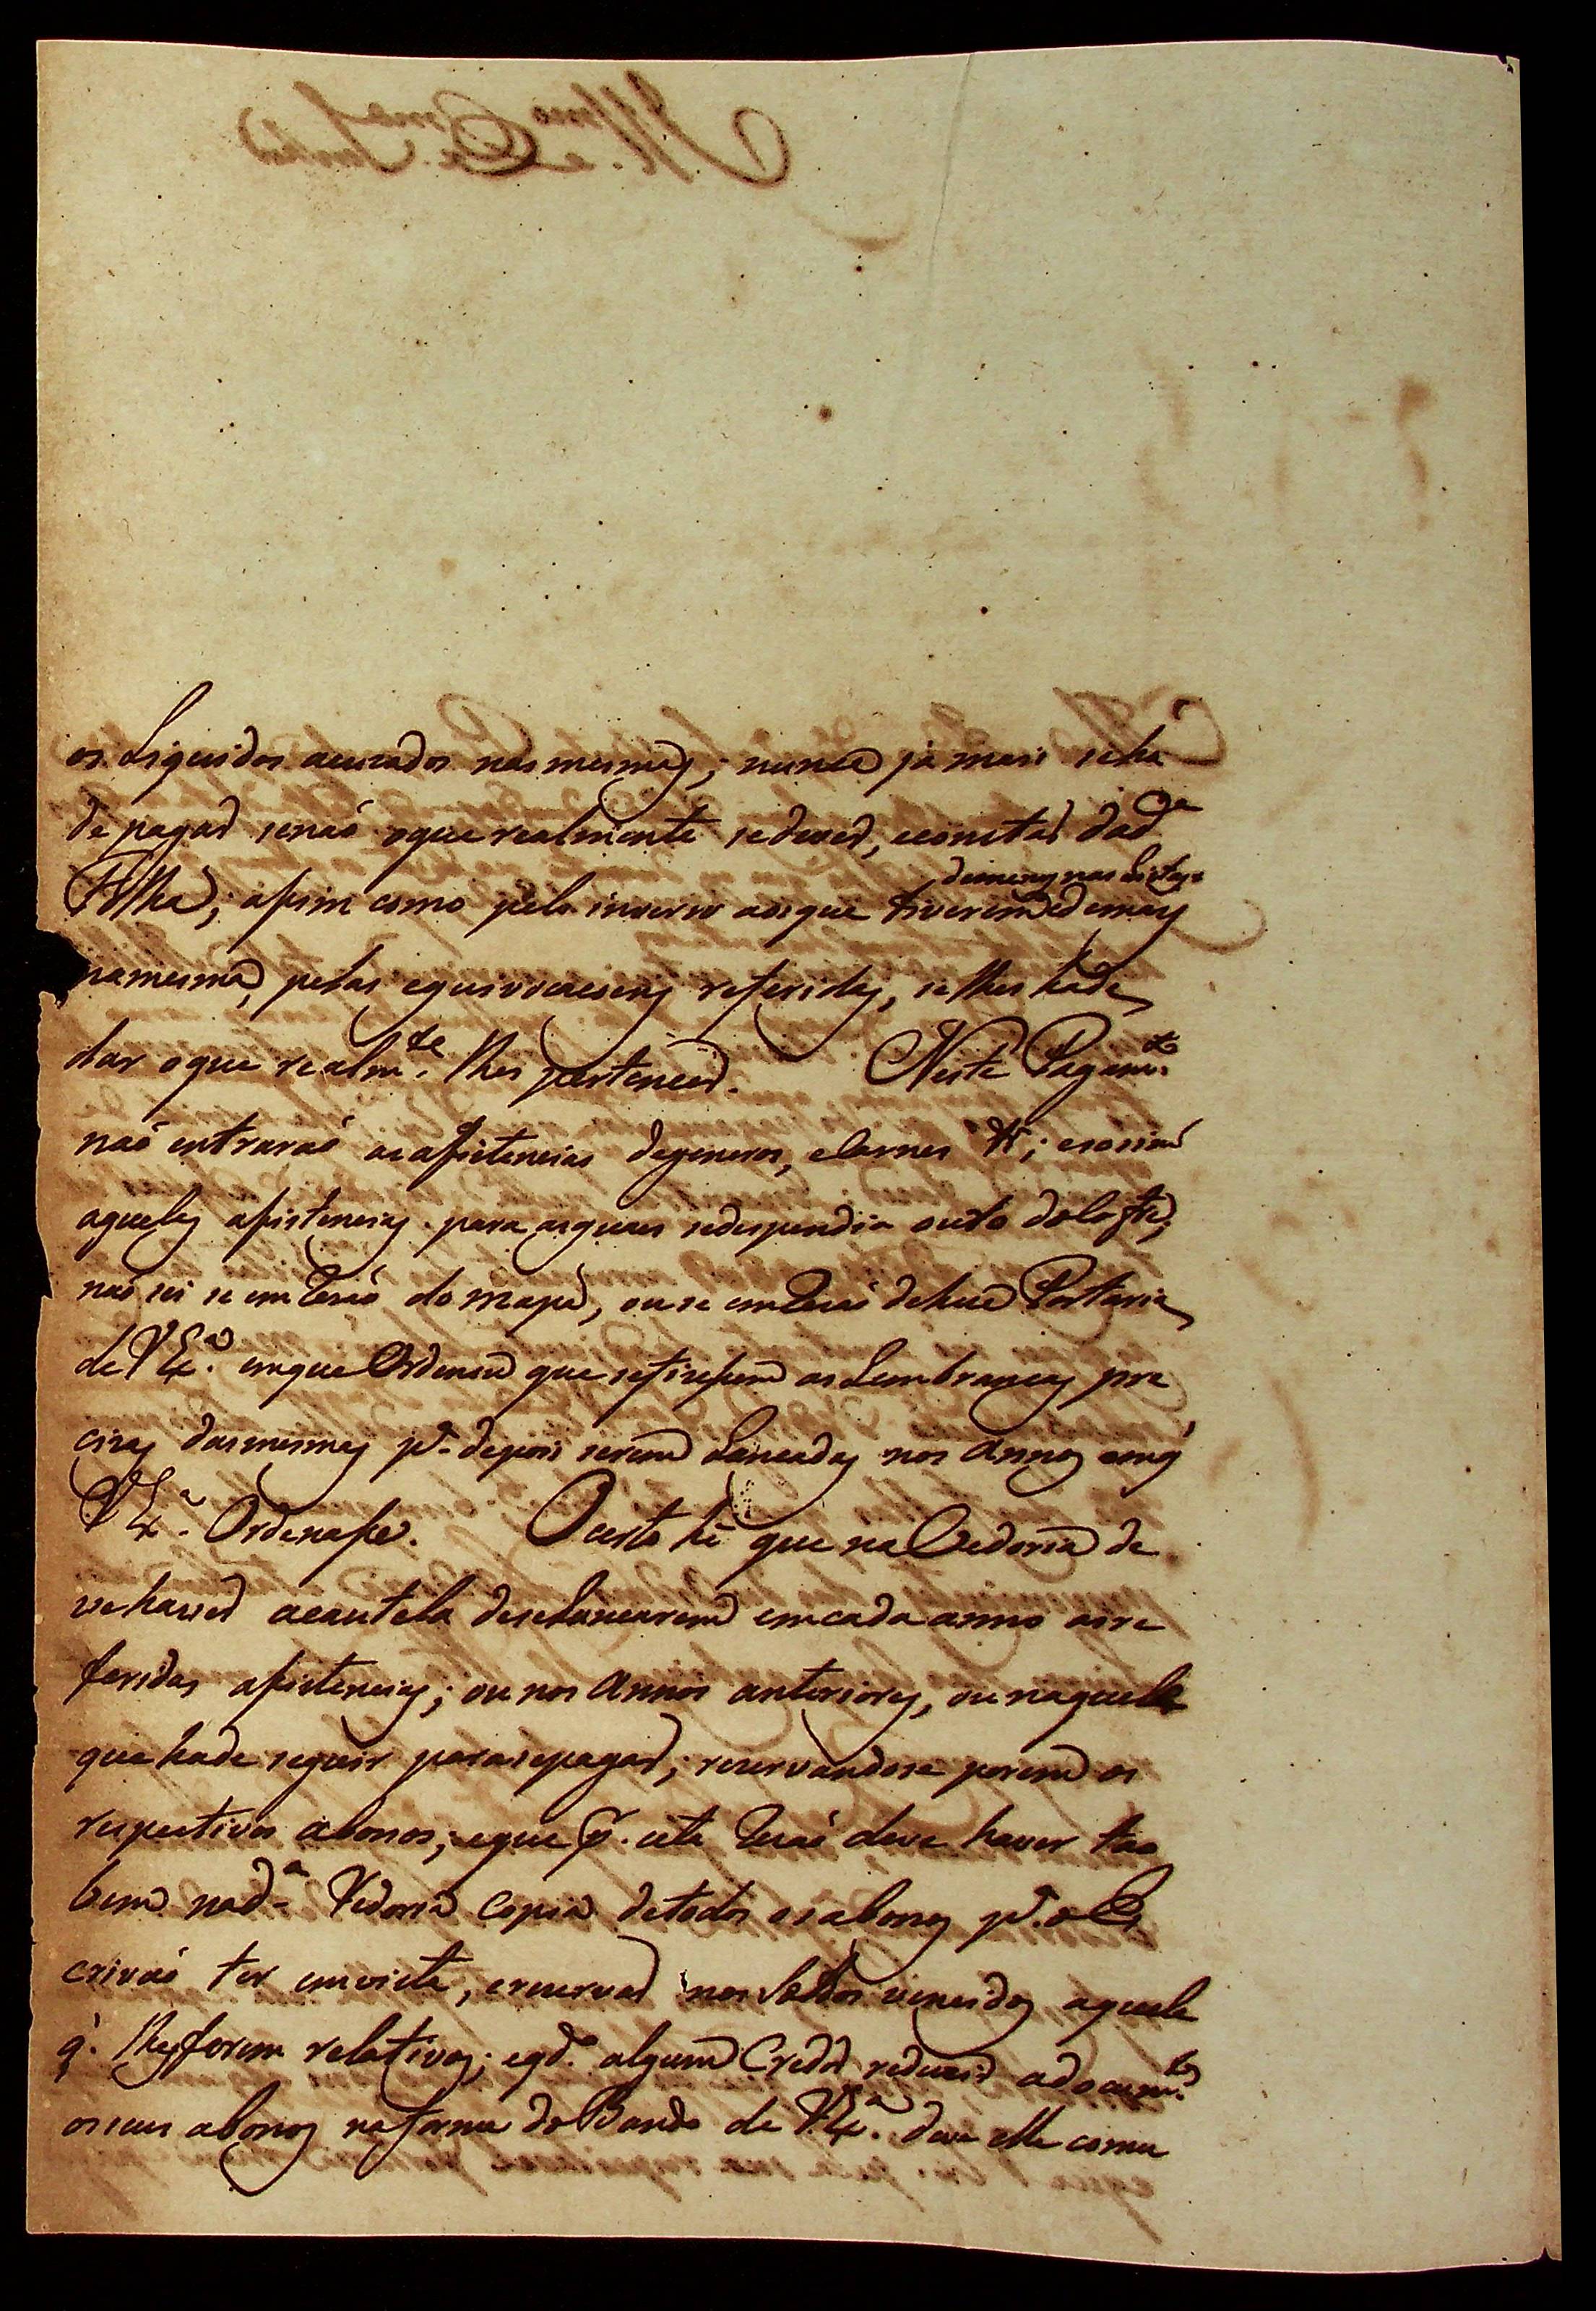 os Liquidos acuzados nas mesmas; nunca ja mais se ha
de pagar senaõ o que realmente se dever, e constar da d.ª
Folha; assim como pelo inverso aos que tiverem de mais
de menos nas Listas
na mesma, pelas equivocaçoens referidas, se lhes ha de
dar o que realm.te lhes pertencer. Neste Pagam.to
naõ entraraõ as assistencias de generos, e Carnes &;
aquelas assistencias para as quaes se despendia
naõ sei se em rezaõ do mapa, ou se em rezaõ de hua Portaria
de V Ex.ª em que Ordena que se fizessem as Lembranças pre
cizas das mesmas p.ª depois serem Lançadas nos Annos em q̃
V Ex.ª Ordenasse. O certo hé que na Vedoria de
ve haver a cautela de se Lançarem em cada anno as re
feridas assistencias; ou nos Annos anteriores, ou naquele
que ha de seguir para se pagar; rezervandose porem os
respectivos abonos; e que p.r esta rezaõ deve haver tao
bem na d.ª Vedoria Copia de todos os abonos p.ª o Es
crivaõ ter em vista, e rezervar nos Soldos vencidos aquele
q̃. lhes forem relativos; e q.do algum Credor reduzir a docum.to
os seus abonos na forma do Bando de V. Ex.ª deve elle comu